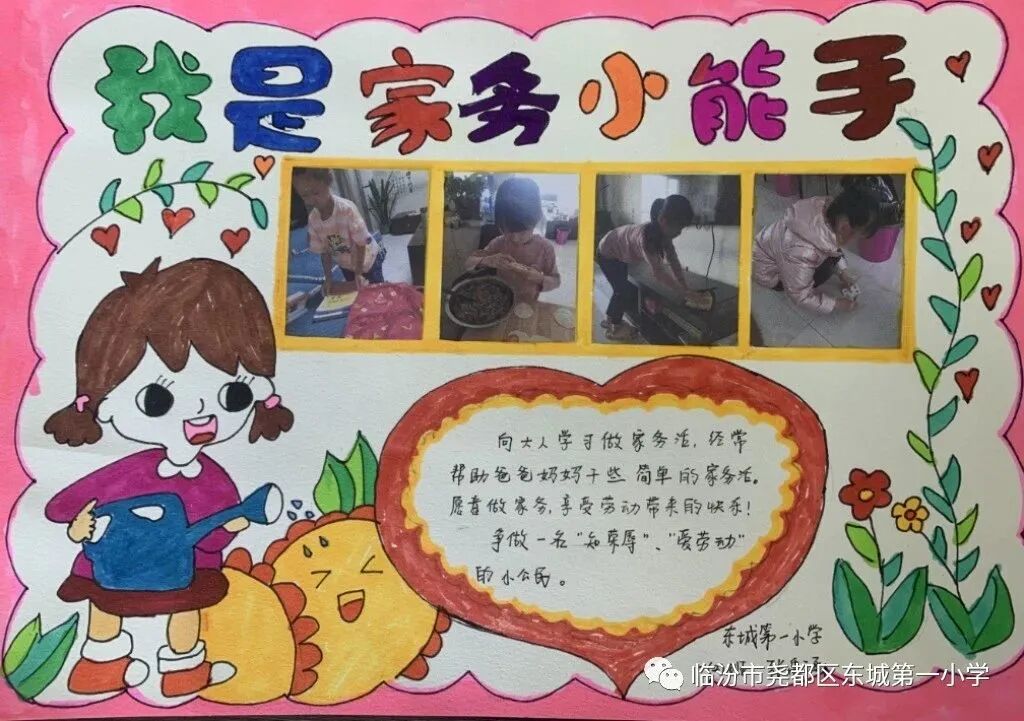 我是家务小能手
向大人学习做家务活，经常
帮助爸爸妈妈干些简单的家务活。
愿意做家务，享受劳动带来的快乐！
争做一名“知荣辱”、“爱劳动”
的小公民。
东城第一小学
临汾市尧都区东城第一小学